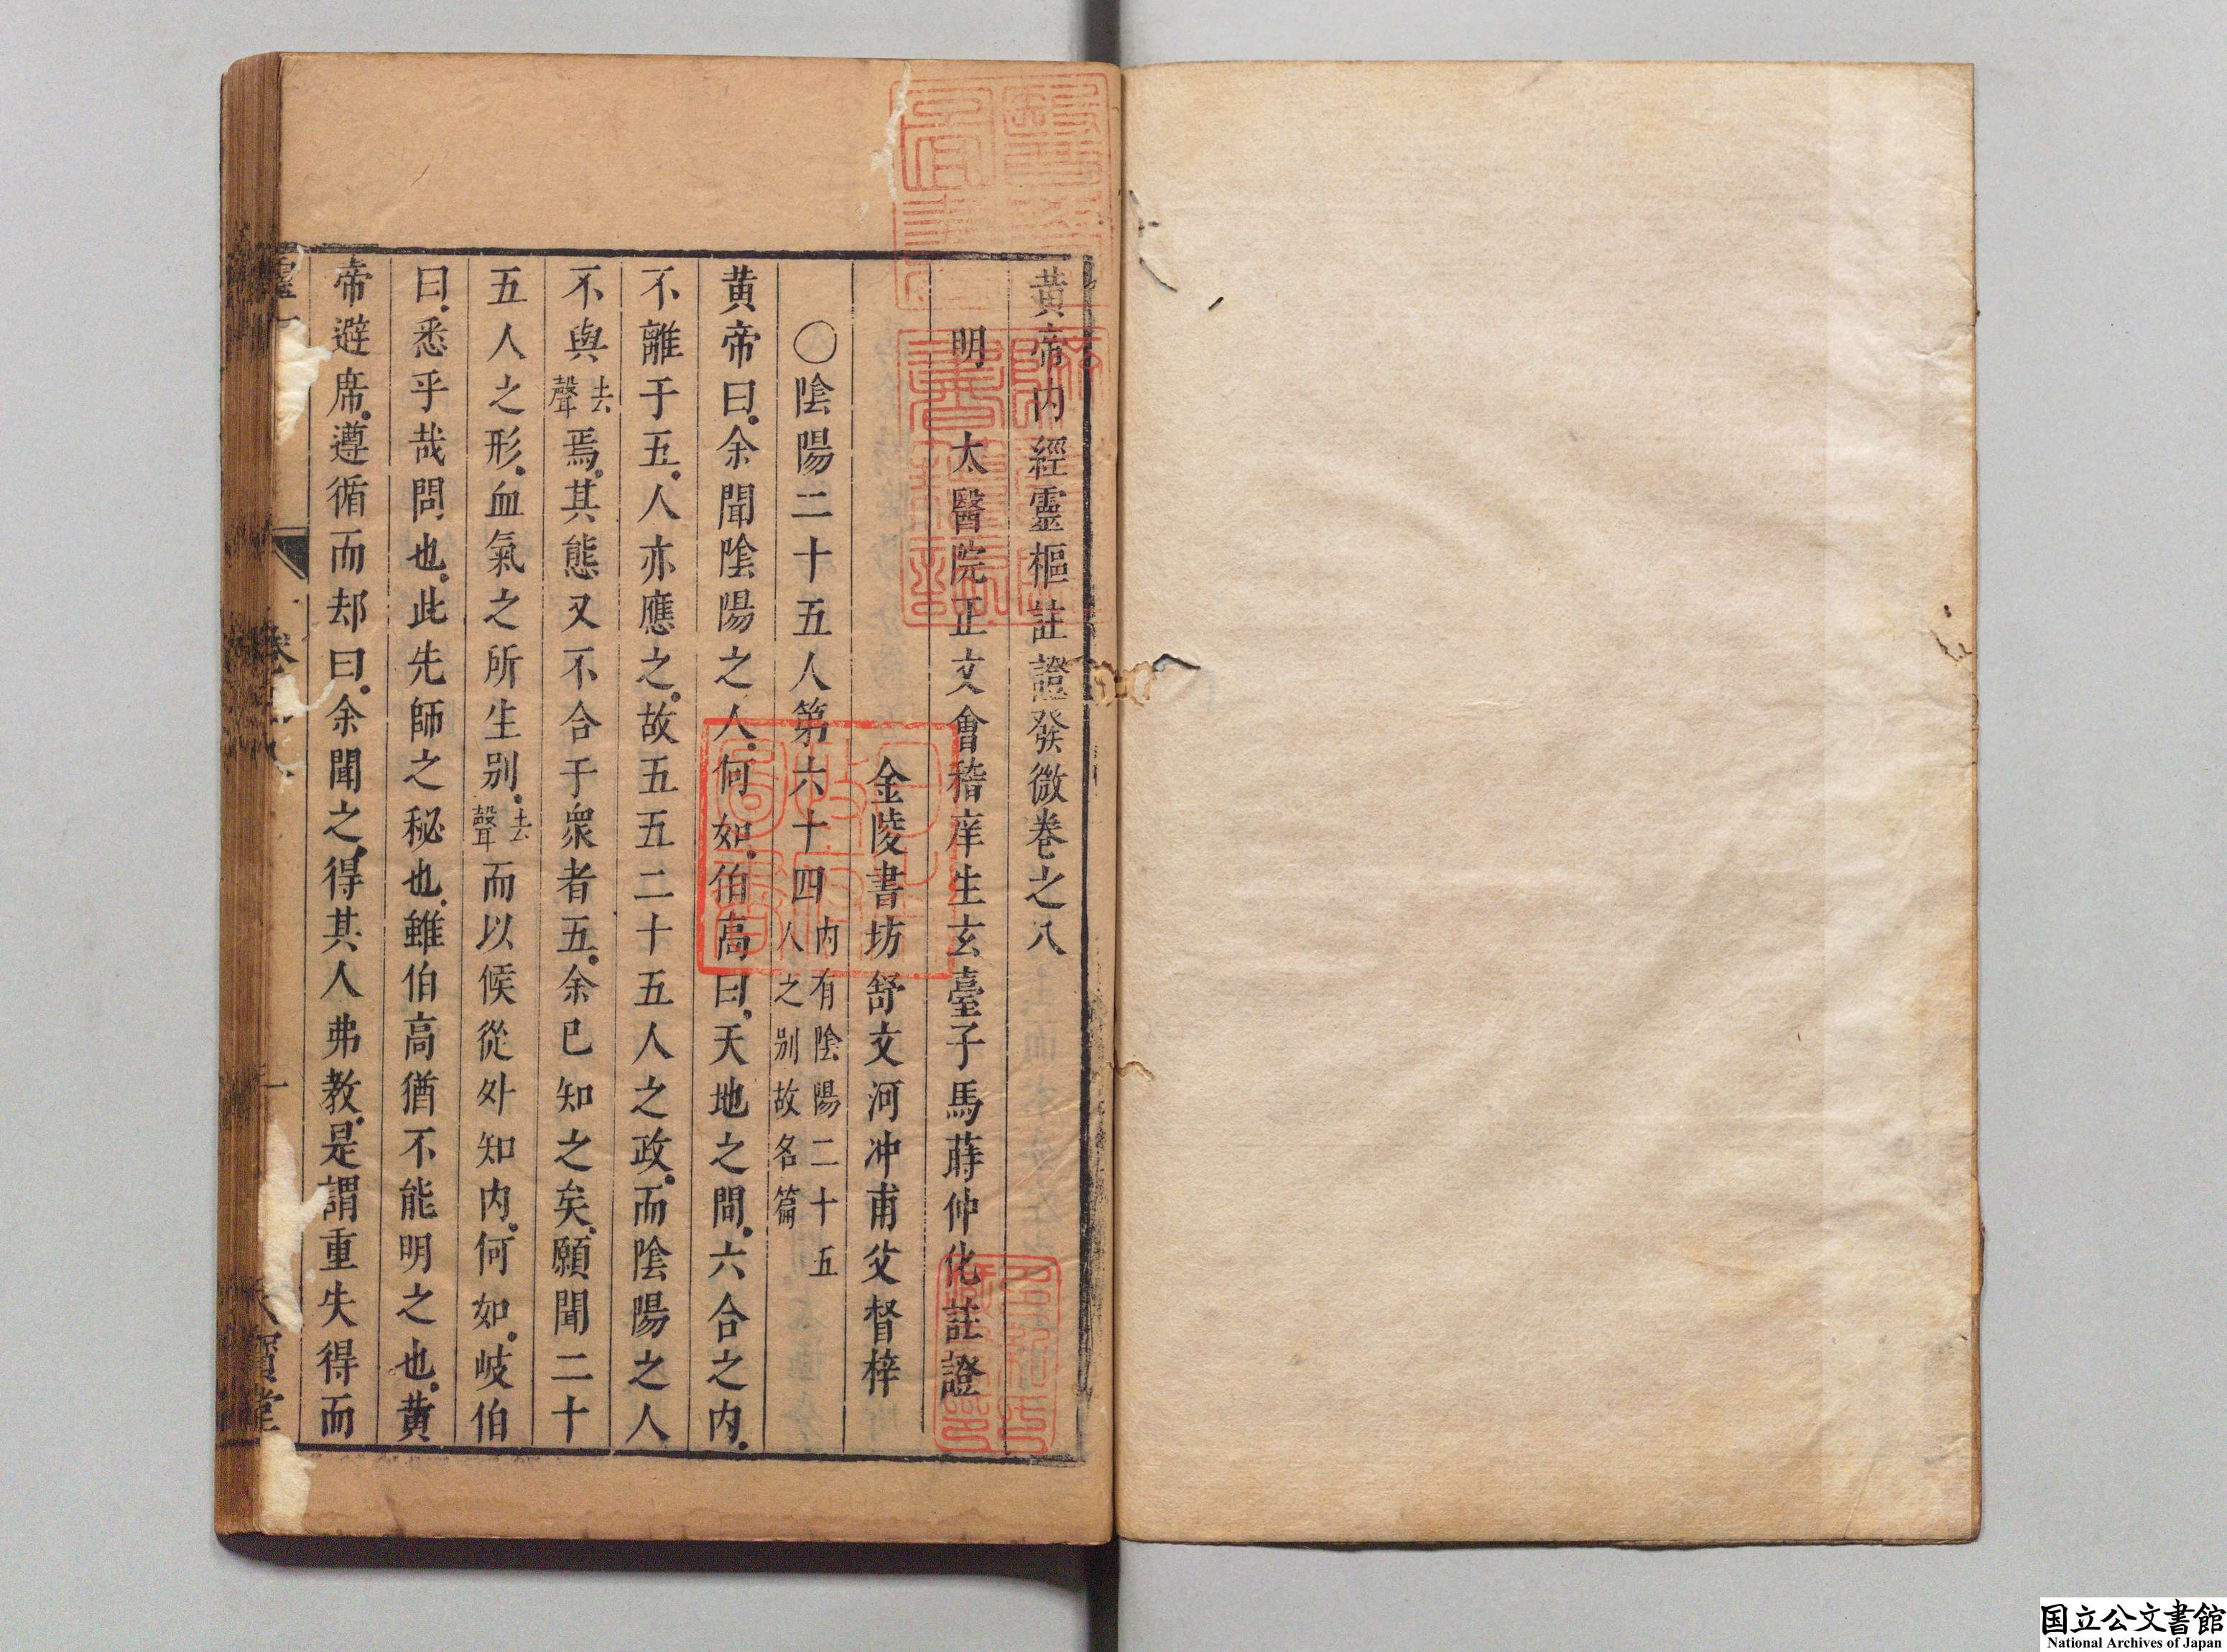 黃帝內經靈樞註證發微卷之八
明 太醫院正文會稽庠生玄臺子馬蒔仲化註證
金陵書坊舒文河冲甫父督梓
〇陰陽二十五人第六十四 內有陰陽二十五人之别故名篇
黃帝曰余聞陰陽之人何如伯高曰天地之間六合之內
不離于五人亦應之故五五二十五人之政而陰陽之人
不與去聲焉其態又不合于衆者五余已知之矣願聞二十
五人之形血氣之所生别去聲而以候從外知內何如岐伯
曰悉乎哉問也此先師之秘也雖伯高猶不能明之也黃
帝避席遵循而却曰余聞之得其人弗教是謂重失得而
寶堂
国立公文書館
National Archives of Japan